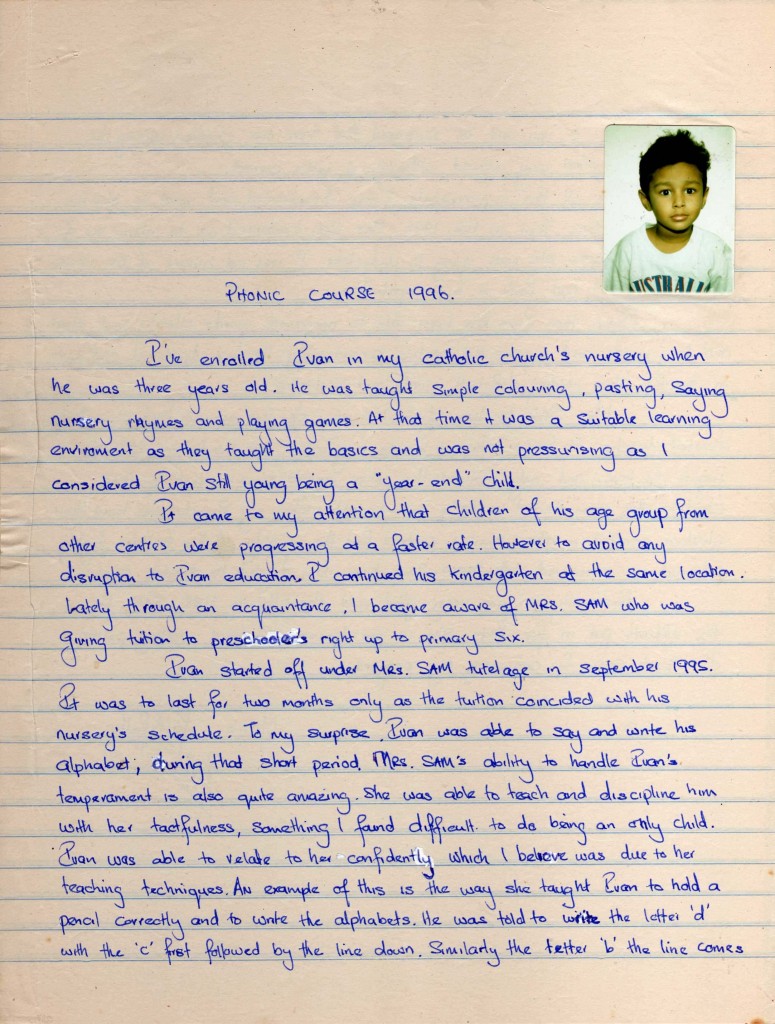 USTRALI
PHONIC COURSE 1996.
I've enrolled Ivan in my catholic church's nursery when
he was three years old. He was taught simple colouring, pasting, saying
nursery rhymes and playing games. At that time it was a suitable learning
enviroment as they taught the basics and was not pressurising as I
considered Ivan still young being a "year-end" child.
It came to my attention that children of his age group from
other centres were progressing at a faster rate. However to avoid any
disruption to Ivan education, I continued his kindergarten at the same location.
Lately through an acquaintance, I became aware of MRS. SAM who was
giving tuition to preschooler's right up to primary six.
Ivan started off under MRS. SAM tutelage in september 1995.
It was to last for two months only as the tuition coincided with his
nursery's schedule. To my surprise, Ivan was able to say and write his
alphabet, during that short period. MRS. SAM's ability to handle Ivan's
temperament is also quite amazing. She was able to teach and discipline him
with her tactfulness, something I found difficult to do being an only child.
Ivan was able to relate to her confidently which I believe was due to her
teaching techniques. An example of this is the way she taught Ivan to hold a
pencil correctly and to write the alphabets. He was told to write the letter 'd'
with the 'c' first followed by the line down. Similarly the letter 'b' the line comes